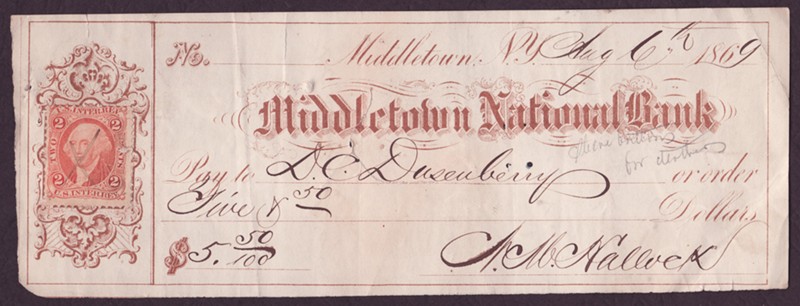 No. Middletown, N.Y. Aug 6th 1869
Middletown National Bank
Pay to D. C. Dusenberry or order
for
Five & 50 Dollars
$ 5. 50/100 N. M. Hallock
U.S. INTER. REV.
2 2
TWO
2 2